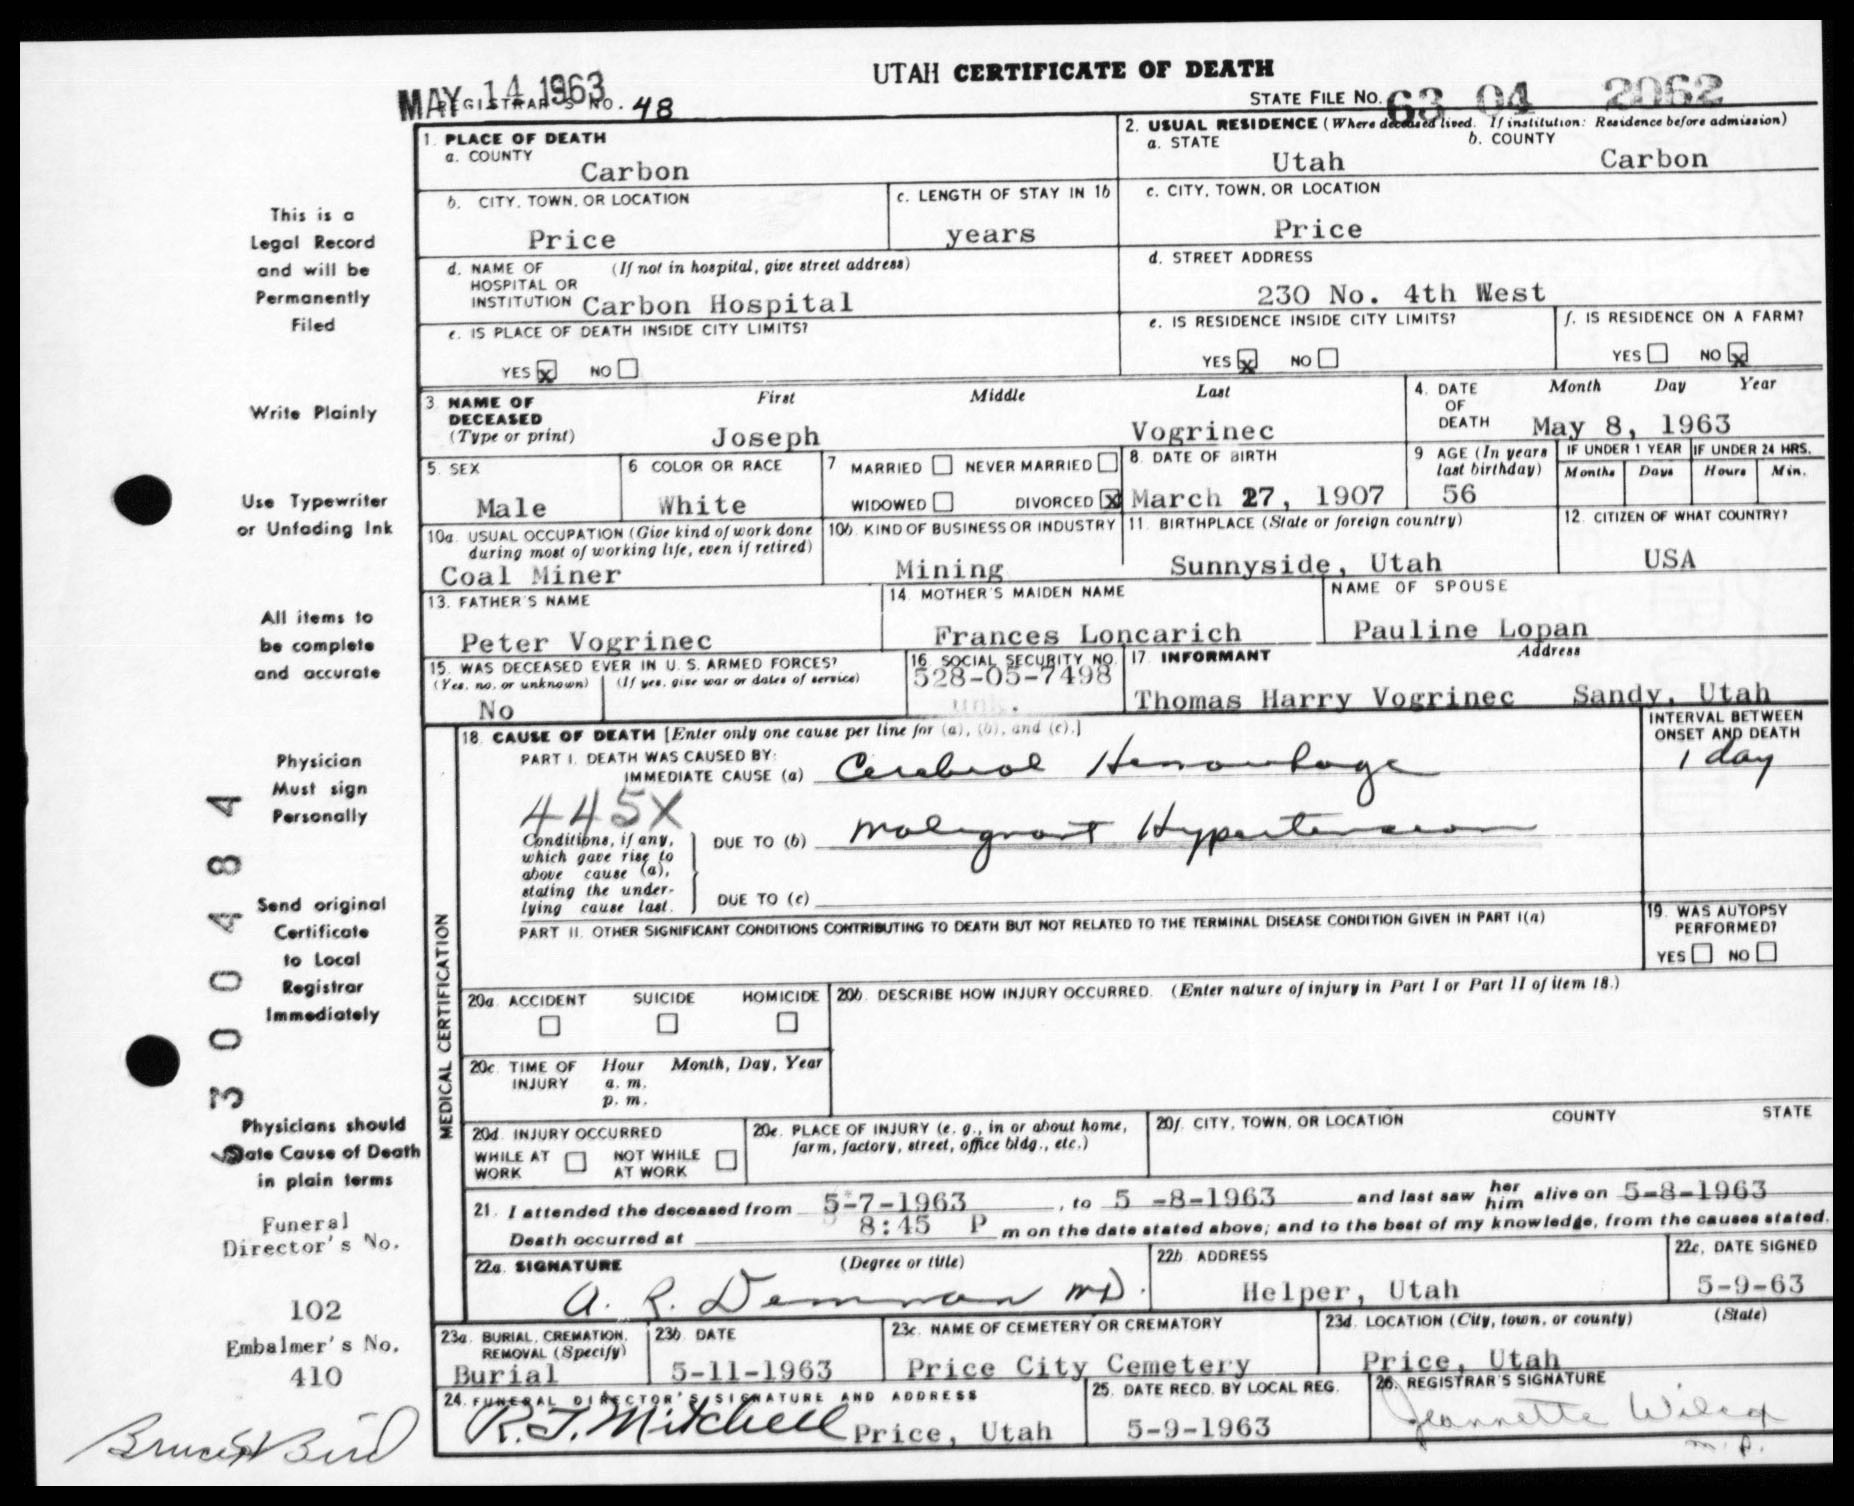 UTAH CERTIFICATE OF DEATH
MAY 14 1963
REGISTRAR'S NO. 48
STATE FILE NO. 63 04 2062
1. PLACE OF DEATH
a. COUNTY
Carbon
2. USUAL RESIDENCE (Where deceased lived. If institution: Residence before admission)
a. STATE b. COUNTY
Utah Carbon
b. CITY, TOWN, OR LOCATION
Price
c. LENGTH OF STAY IN 1b
years
c. CITY, TOWN, OR LOCATION
Price
d. NAME OF (If not in hospital, give street address)
HOSPITAL OR
INSTITUTION Carbon Hospital
d. STREET ADDRESS
230 No. 4th West
e. IS PLACE OF DEATH INSIDE CITY LIMITS?
YES x NO
e. IS RESIDENCE INSIDE CITY LIMITS?
YES x NO
f. IS RESIDENCE ON A FARM?
YES NO x
3. NAME OF First Middle Last
DECEASED
(Type or print) Joseph Vogrinec
4. DATE Month Day Year
OF
DEATH May 8, 1963
5. SEX
Male
6 COLOR OR RACE
White
7 MARRIED NEVER MARRIED
WIDOWED DIVORCED x
8. DATE OF BIRTH
March 27, 1907
9 AGE (In years
last birthday)
56
IF UNDER 1 YEAR IF UNDER 24 HRS.
Months Days Hours Min.
10a. USUAL OCCUPATION (Give kind of work done
during most of working life, even if retired)
Coal Miner
10b. KIND OF BUSINESS OR INDUSTRY
Mining
11. BIRTHPLACE (State or foreign country)
Sunnyside, Utah
12. CITIZEN OF WHAT COUNTRY?
USA
13. FATHER'S NAME
Peter Vogrinec
14. MOTHER'S MAIDEN NAME
Frances Loncarich
NAME OF SPOUSE
Pauline Lopan
15. WAS DECEASED EVER IN U. S. ARMED FORCES?
(Yes, no, or unknown) (If yes, give war or dates of service)
No
16. SOCIAL SECURITY NO.
528-05-7498
unk.
17. INFORMANT Address
Thomas Harry Vogrinec Sandy, Utah
MEDICAL CERTIFICATION
18. CAUSE OF DEATH [Enter only one cause per line for (a), (b), and (c).]
INTERVAL BETWEEN
ONSET AND DEATH
PART I. DEATH WAS CAUSED BY:
IMMEDIATE CAUSE (a) Cerebral Hemorrhage 1 day
445X
Conditions, if any,
which gave rise to
above cause (a),
stating the under-
lying cause last.
DUE TO (b) Malignant Hypertension
DUE TO (c)
PART II. OTHER SIGNIFICANT CONDITIONS CONTRIBUTING TO DEATH BUT NOT RELATED TO THE TERMINAL DISEASE CONDITION GIVEN IN PART I(a)
19. WAS AUTOPSY
PERFORMED?
YES NO
20a. ACCIDENT SUICIDE HOMICIDE
20b. DESCRIBE HOW INJURY OCCURRED. (Enter nature of injury in Part I or Part II of item 18.)
20c. TIME OF Hour Month, Day, Year
INJURY a. m.
p. m.
20d. INJURY OCCURRED
WHILE AT NOT WHILE
WORK AT WORK
20e. PLACE OF INJURY (e. g., in or about home,
farm, factory, street, office bldg., etc.)
20f. CITY, TOWN, OR LOCATION COUNTY STATE
21. I attended the deceased from 5-7-1963, to 5 -8-1963 and last saw her him alive on 5-8-1963
Death occurred at 8:45 P m on the date stated above; and to the best of my knowledge, from the causes stated.
22a. SIGNATURE (Degree or title)
A. R. Demman MD.
22b. ADDRESS
Helper, Utah
22c. DATE SIGNED
5-9-63
23a. BURIAL, CREMATION,
REMOVAL (Specify)
Burial
23b. DATE
5-11-1963
23c. NAME OF CEMETERY OR CREMATORY
Price City Cemetery
23d. LOCATION (City, town, or county) (State)
Price, Utah
24. FUNERAL DIRECTOR'S SIGNATURE AND ADDRESS
R. J. Mitchell Price, Utah
25. DATE RECD. BY LOCAL REG.
5-9-1963
26. REGISTRAR'S SIGNATURE
Jeannette Wilcox
This is a
Legal Record
and will be
Permanently
Filed
Write Plainly
Use Typewriter
or Unfading Ink
All items to
be complete
and accurate
Physician
Must sign
Personally
Send original
Certificate
to Local
Registrar
Immediately
Physicians should
State Cause of Death
in plain terms
300484
Funeral
Director's No.
102
Embalmer's No.
410
Bruce H Bird